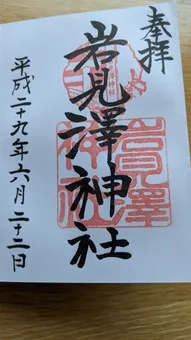 奉拝
岩見澤神社
平成二十九年六月二十二日
岩見澤神社